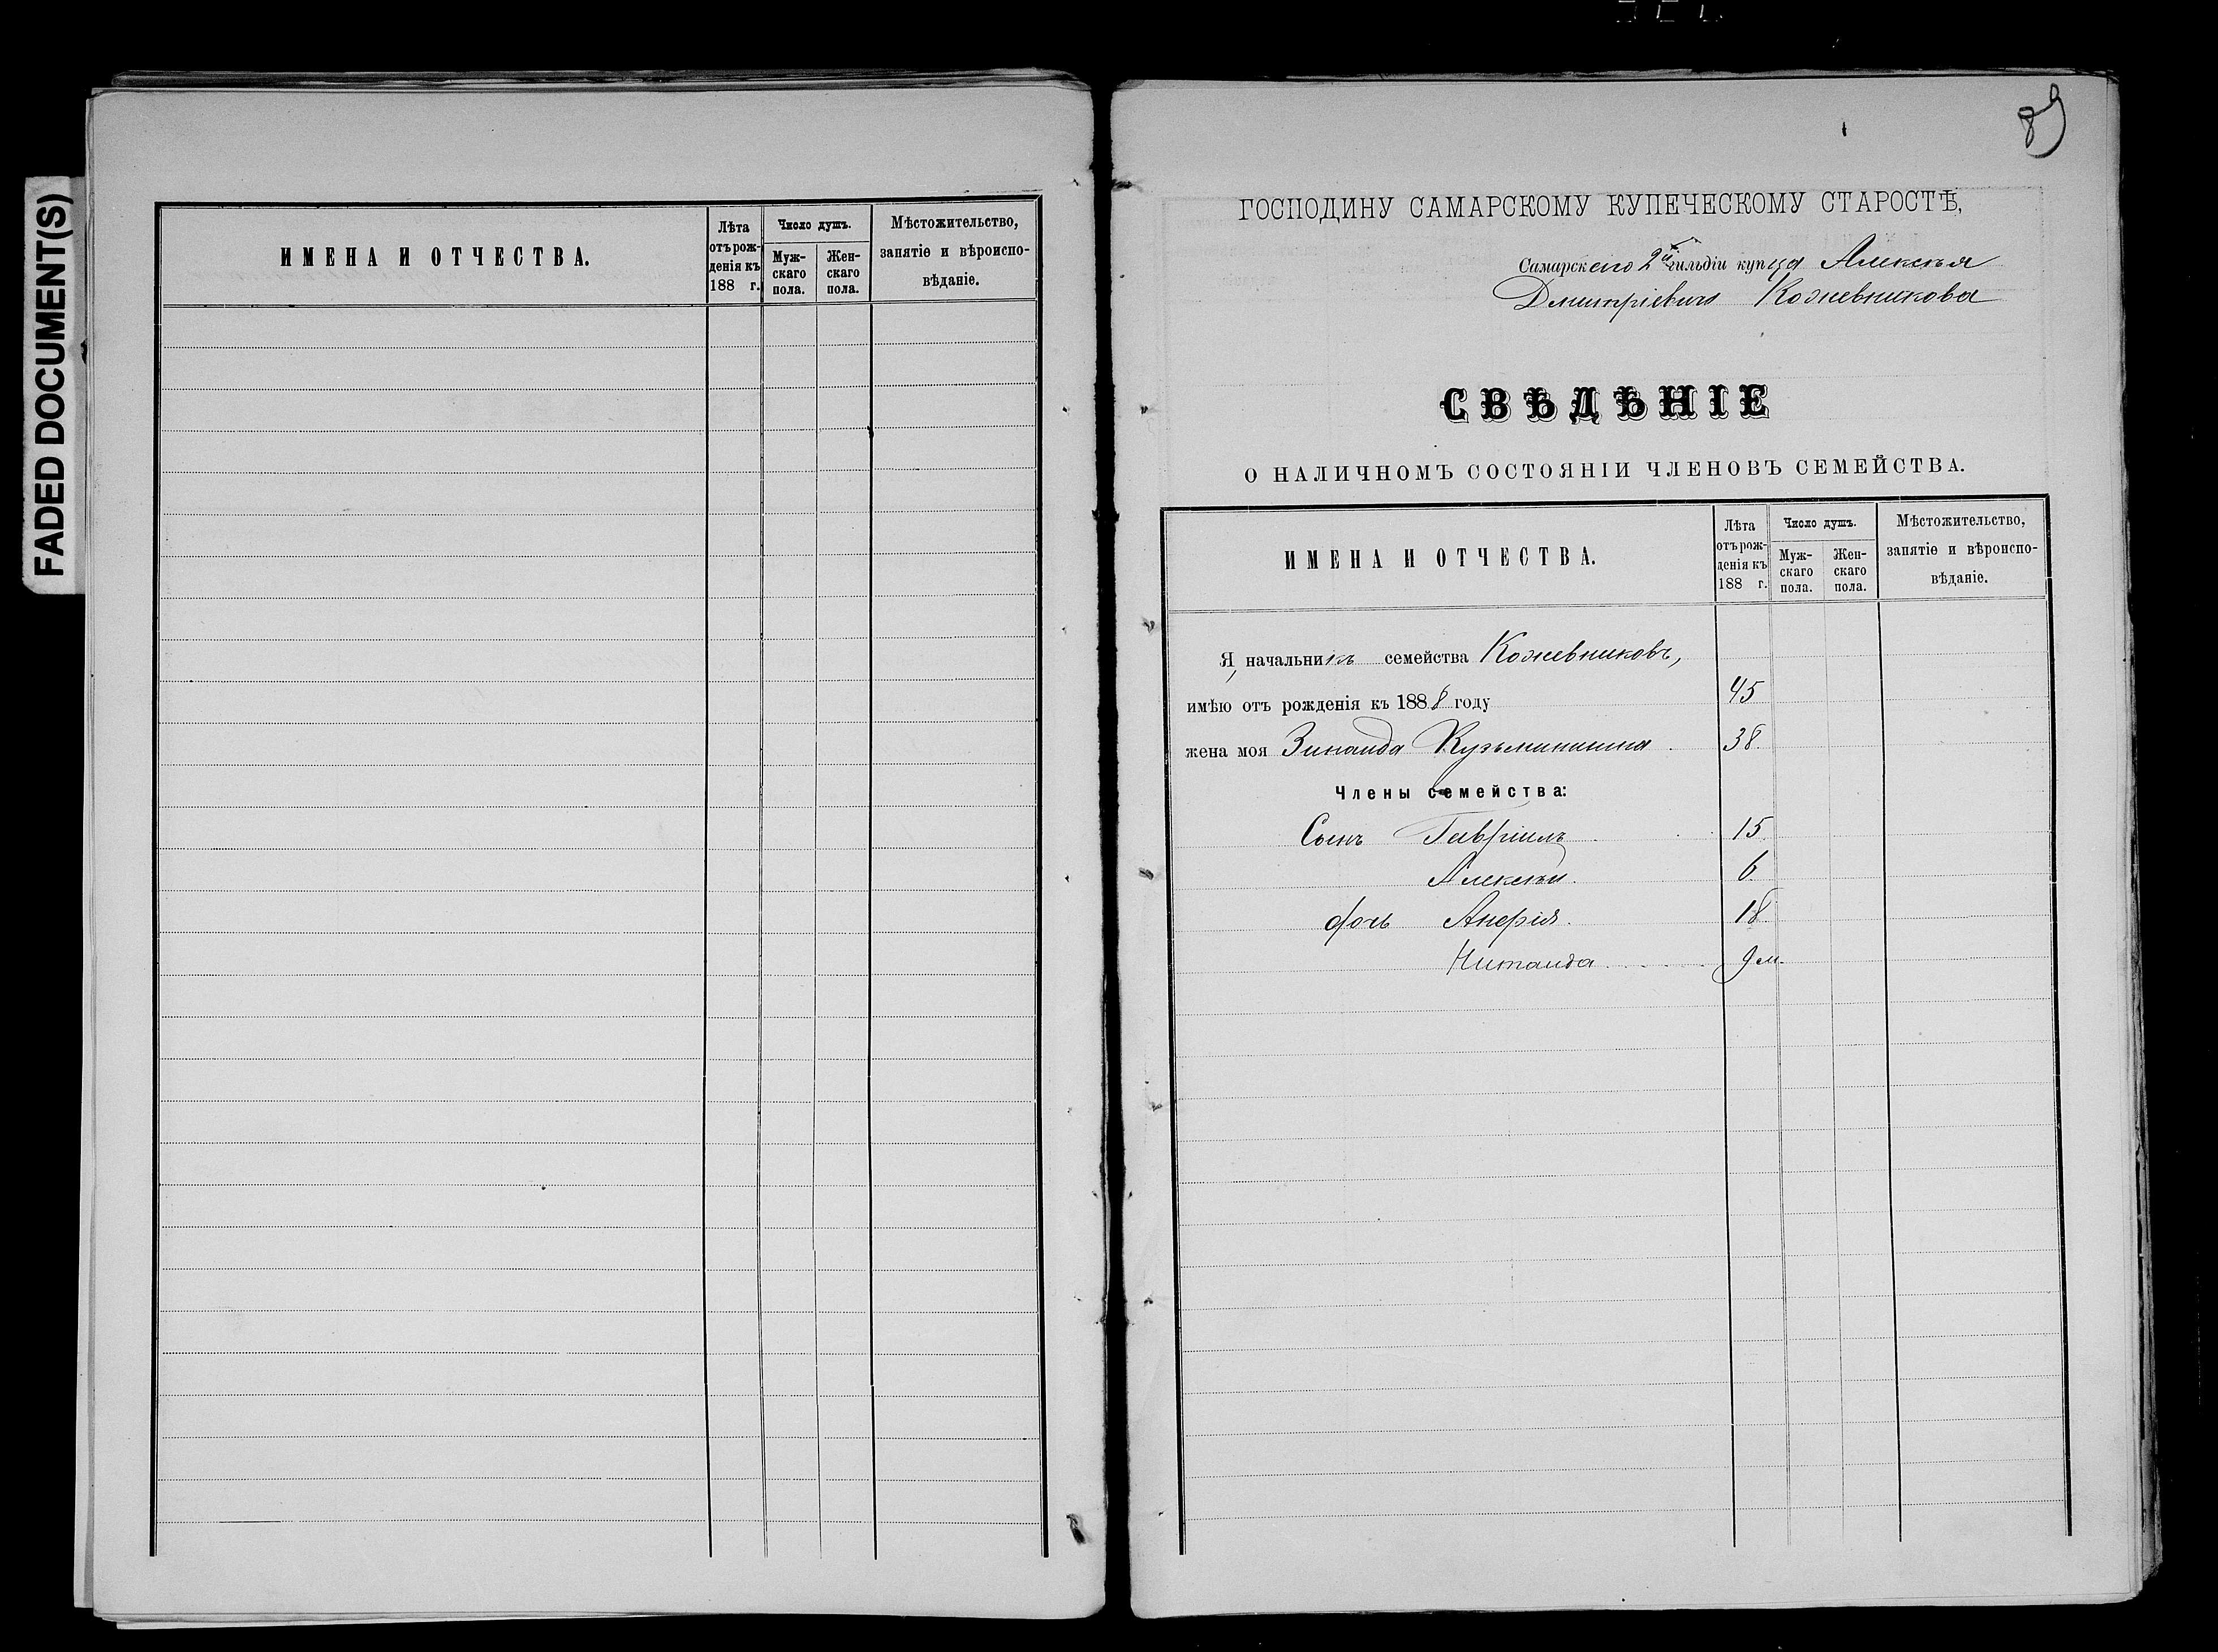 FADED DOCUMENT(S)
ИМЕНА И ОТЧЕСТВА.
Лѣта отъ рожденія къ 188 г.
Число душъ.
Мужскаго пола.
Женскаго пола.
Мѣстожительство, занятіе и вѣроисповѣданіе.
89
ГОСПОДИНУ САМАРСКОМУ КУПЕЧЕСКОМУ СТАРОСТѢ,
Самарскаго 2й гильдіи купца Алексѣя
Дмитріевича Кожевникова
СВѢДѢНІЕ
О НАЛИЧНОМЪ СОСТОЯНІИ ЧЛЕНОВЪ СЕМЕЙСТВА.
ИМЕНА И ОТЧЕСТВА.
Лѣта отъ рожденія къ 188 г.
Число душъ.
Мужскаго пола.
Женскаго пола.
Мѣстожительство, занятіе и вѣроисповѣданіе.
Я, начальникъ семейства Кожевниковъ,
имѣю отъ рожденія къ 1888 году 45
жена моя Зинаида Кузьминишна 38.
Члены семейства:
Сынъ Гавріилъ 15
Алексѣй. 6
дочь 18
9 м.